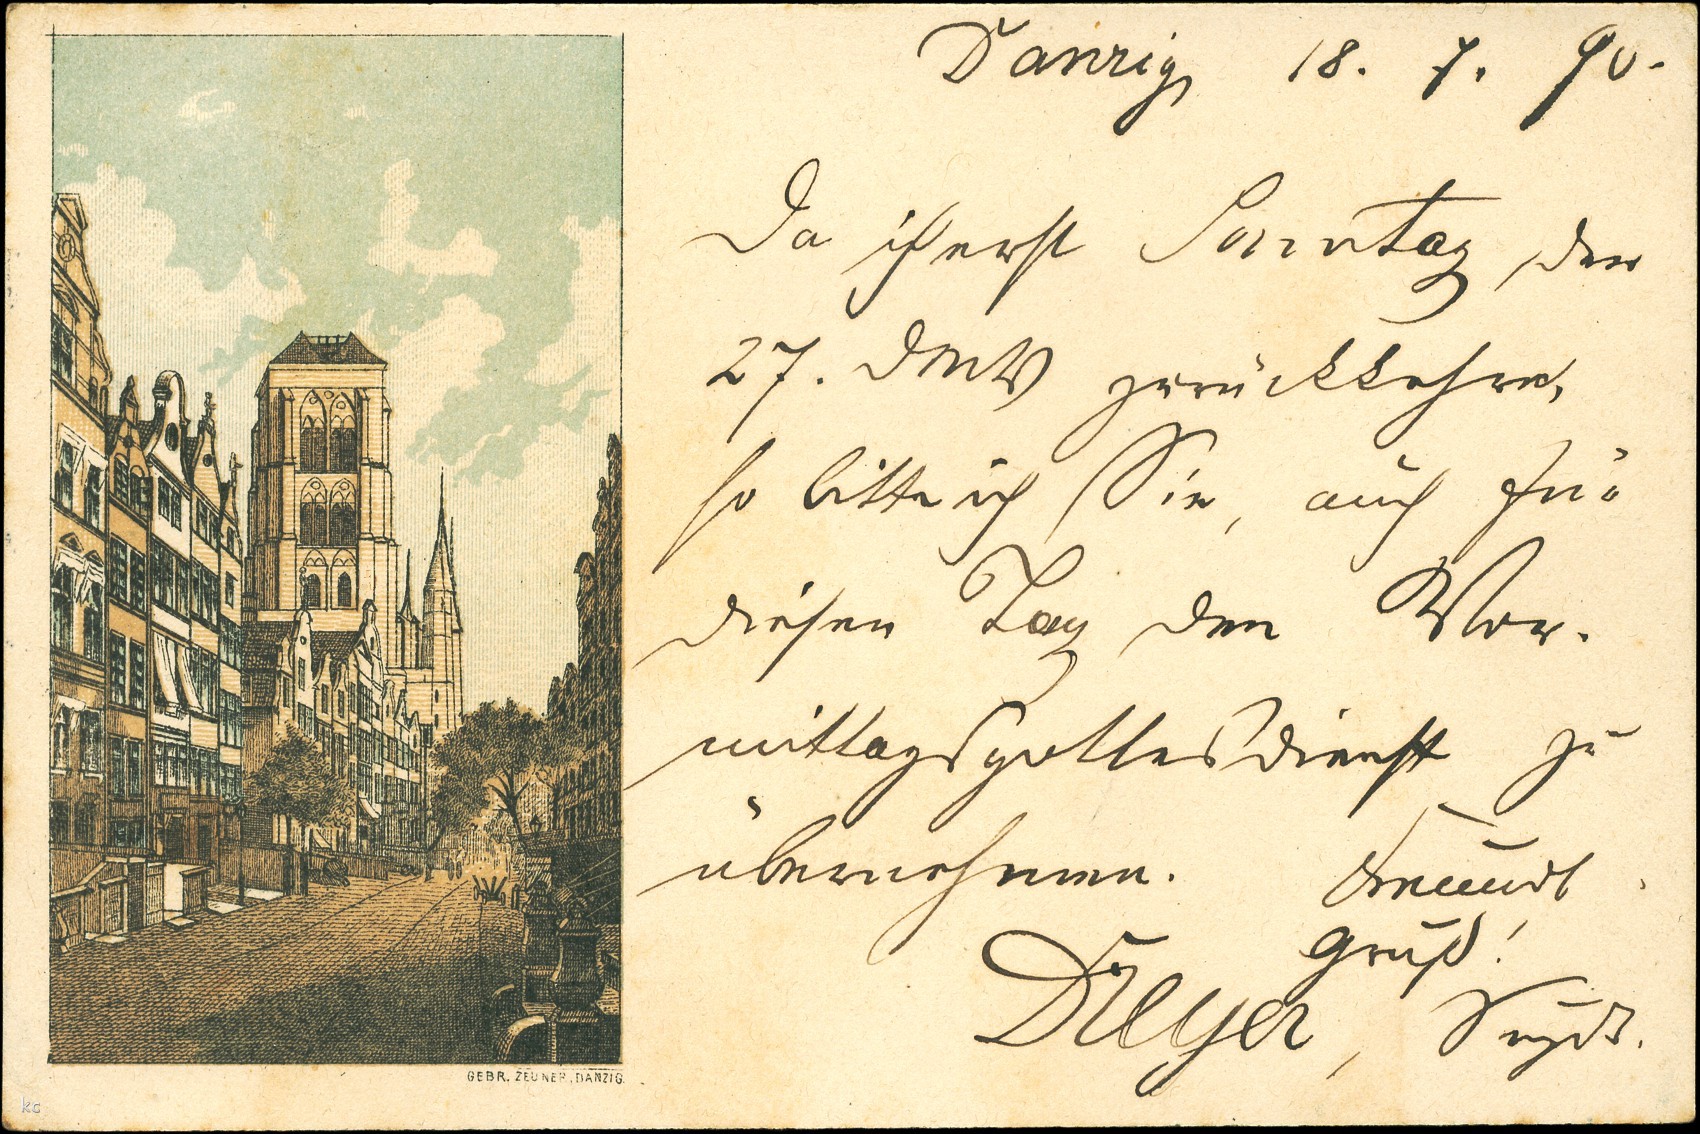 Danzig, 18. 7. 90.
Da ich erst Sonntag den
27. zurückkehre,
so bitte ich Sie, auch für
diesen Tag den Vor-
mittagsgottesdienst zu
übernehmen.
Gruß!
Dreyer,
GEBR. ZEUNER, DANZIG.
kc